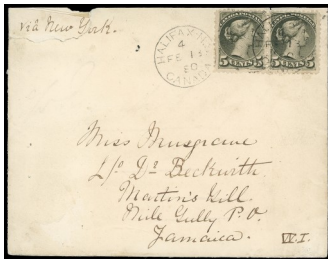 via New York.
HALIFAX
4
FE 1
80
CANADA
5 CENTS 5
5 CENTS 5
Miss Musgrave
c/o Dr Beckwith
Martin's Hill
Mile Gully P.O.
Jamaica.
W.I.